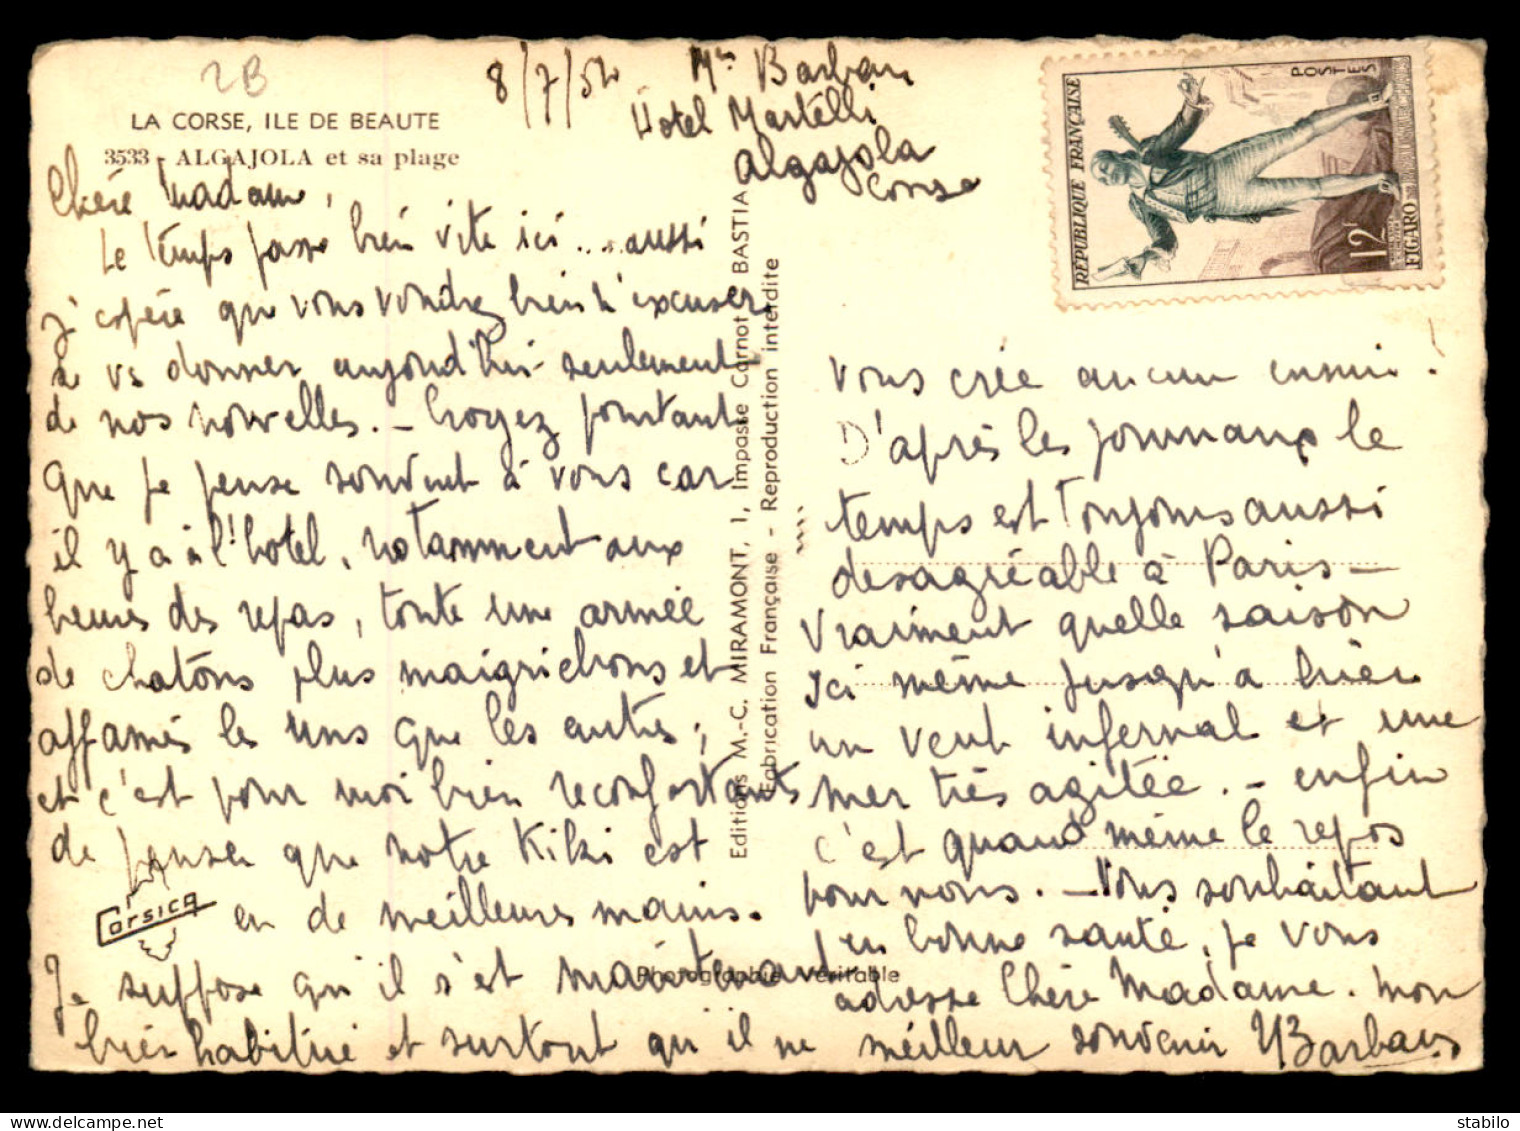 2B
8/7/54
Barbau
Hotel Martelli
Algajola
Corse
LA CORSE, ILE DE BEAUTE
3533 - ALGAJOLA et sa plage
RÉPUBLIQUE FRANÇAISE
POSTES
12F
FIGARO
Chère Madame,
Le temps passe bien vite ici... aussi
j'espère que vous voudrez bien m'excuser
de vs donner aujourd'hui seulement
de nos nouvelles. - Croyez pourtant
que je pense souvent à vous car
il y a à l'hotel, notamment aux
heures des repas, toute une armée
de chatons plus maigrichons et
affamés les uns que les autres;
et c'est pour moi bien reconfortants
de penser que notre Kiki est
en de meilleures mains.
Je suppose qu'il s'est maintenant
bien habitué et surtout qu'il ne
Corsica
Editions M.-C. MIRAMONT, 1, Impasse Carnot BASTIA
Fabrication Française - Reproduction interdite
Photographie Véritable
vous crée aucun ennui.
D'après les journaux le
temps est toujours aussi
désagréable à Paris -
Vraiment quelle saison
Ici même jusqu'à hier
un vent infernal et une
mer très agitée. - enfin
c'est quand même le repos
pour nous. - Vous souhaitant
en bonne santé, je vous
adresse Chère Madame. mon
meilleur souvenir Barbau
stabilo
delcampe.net